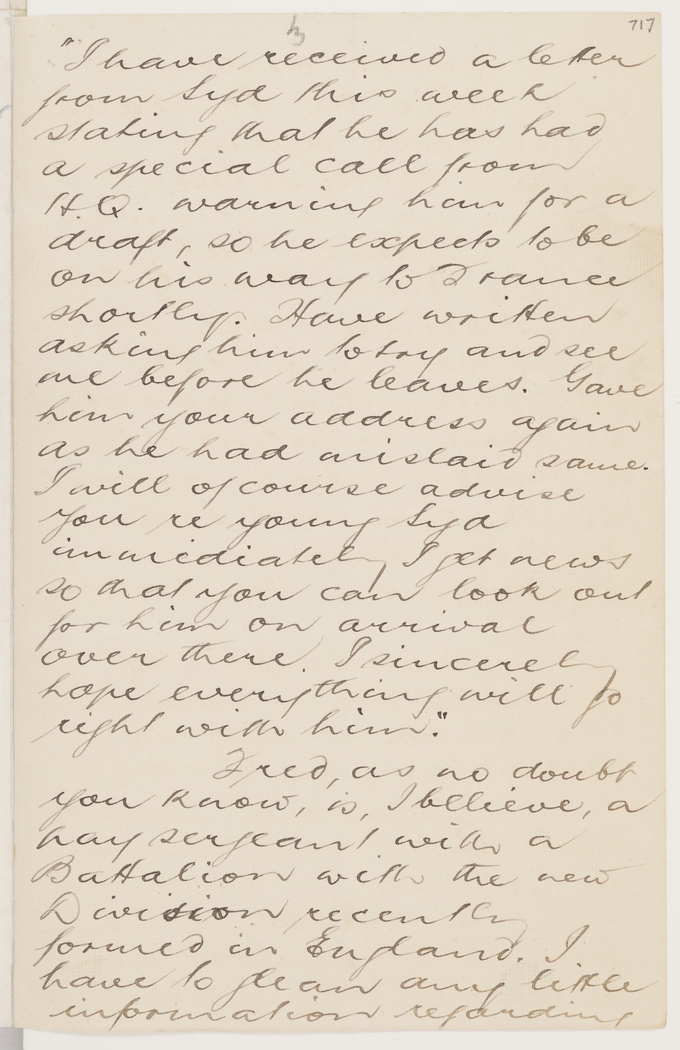 717
"I have received a letter
from Syd this week
stating that he has had
a special call from
H.Q. warning him for a
draft, so he expects to be
on his way to France
shortly. Have written
asking him to try and see
me before he leaves. Gave
him your address again
as he had mislaid same.
I will of course advise
you re young Syd
immediately I get news
so that you can look out
for him on arrival
over there. I sincerely
hope everything will go
right with him."
Fred, as no doubt
you know, is, I bllieve, a
pay sergeant with a
Battalion with the new
Division recently
formed in England. I
have to glean any little
information regarding